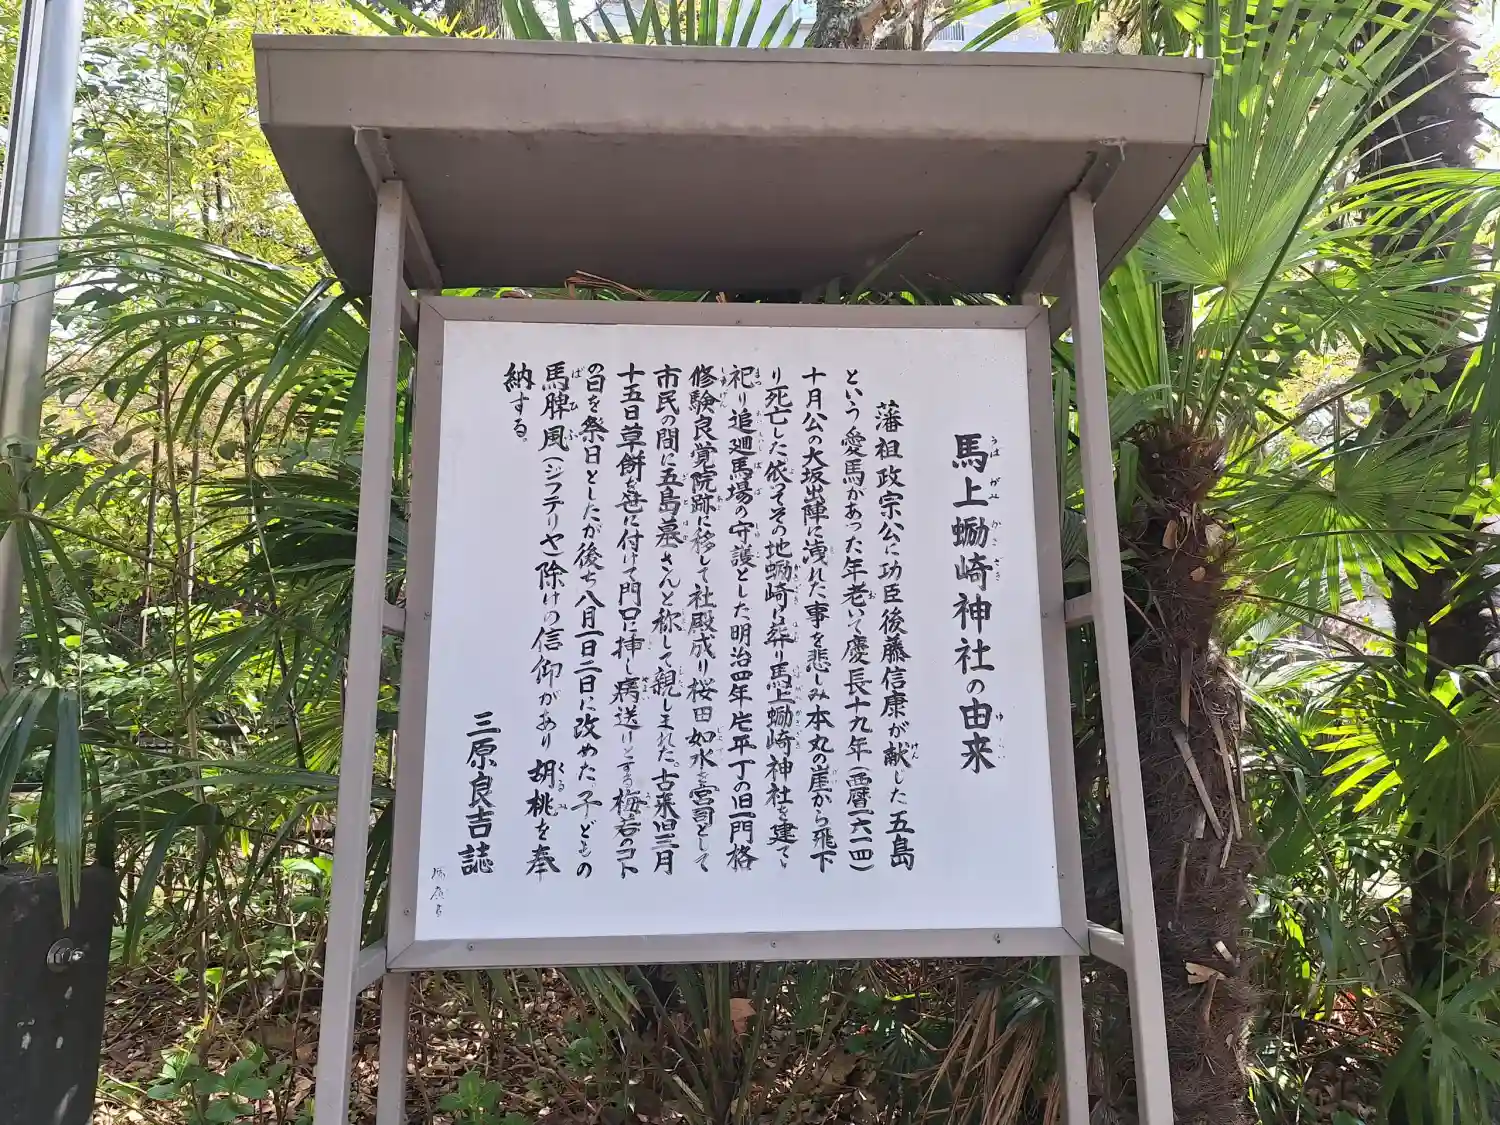 馬上蛎崎神社の由来
藩祖政宗公に功臣後藤信康が献じた五島
という愛馬があった年老いて慶長十九年(西暦一六一四)
十月公の大坂出陣に洩れた事を悲しみ本丸の崖から飛下
り死亡した依ってその地蛎崎に葬り馬上蛎崎神社を建てゝ
祀り追廻馬場の守護とした明治四年片平丁の旧一門格
修験良覚院跡に移して社殿成り桜田如水を宮司として
市民の間に五島墓さんと称して親しまれた。古来旧三月
十五日草餅を笹に付けて門口に挿し病送りとする梅若のコト
の日を祭日としたが後ち八月一日二日に改めた子どもの
馬脾風(ジフテリヤ)除けの信仰があり胡桃を奉
納する。
三原良吉誌